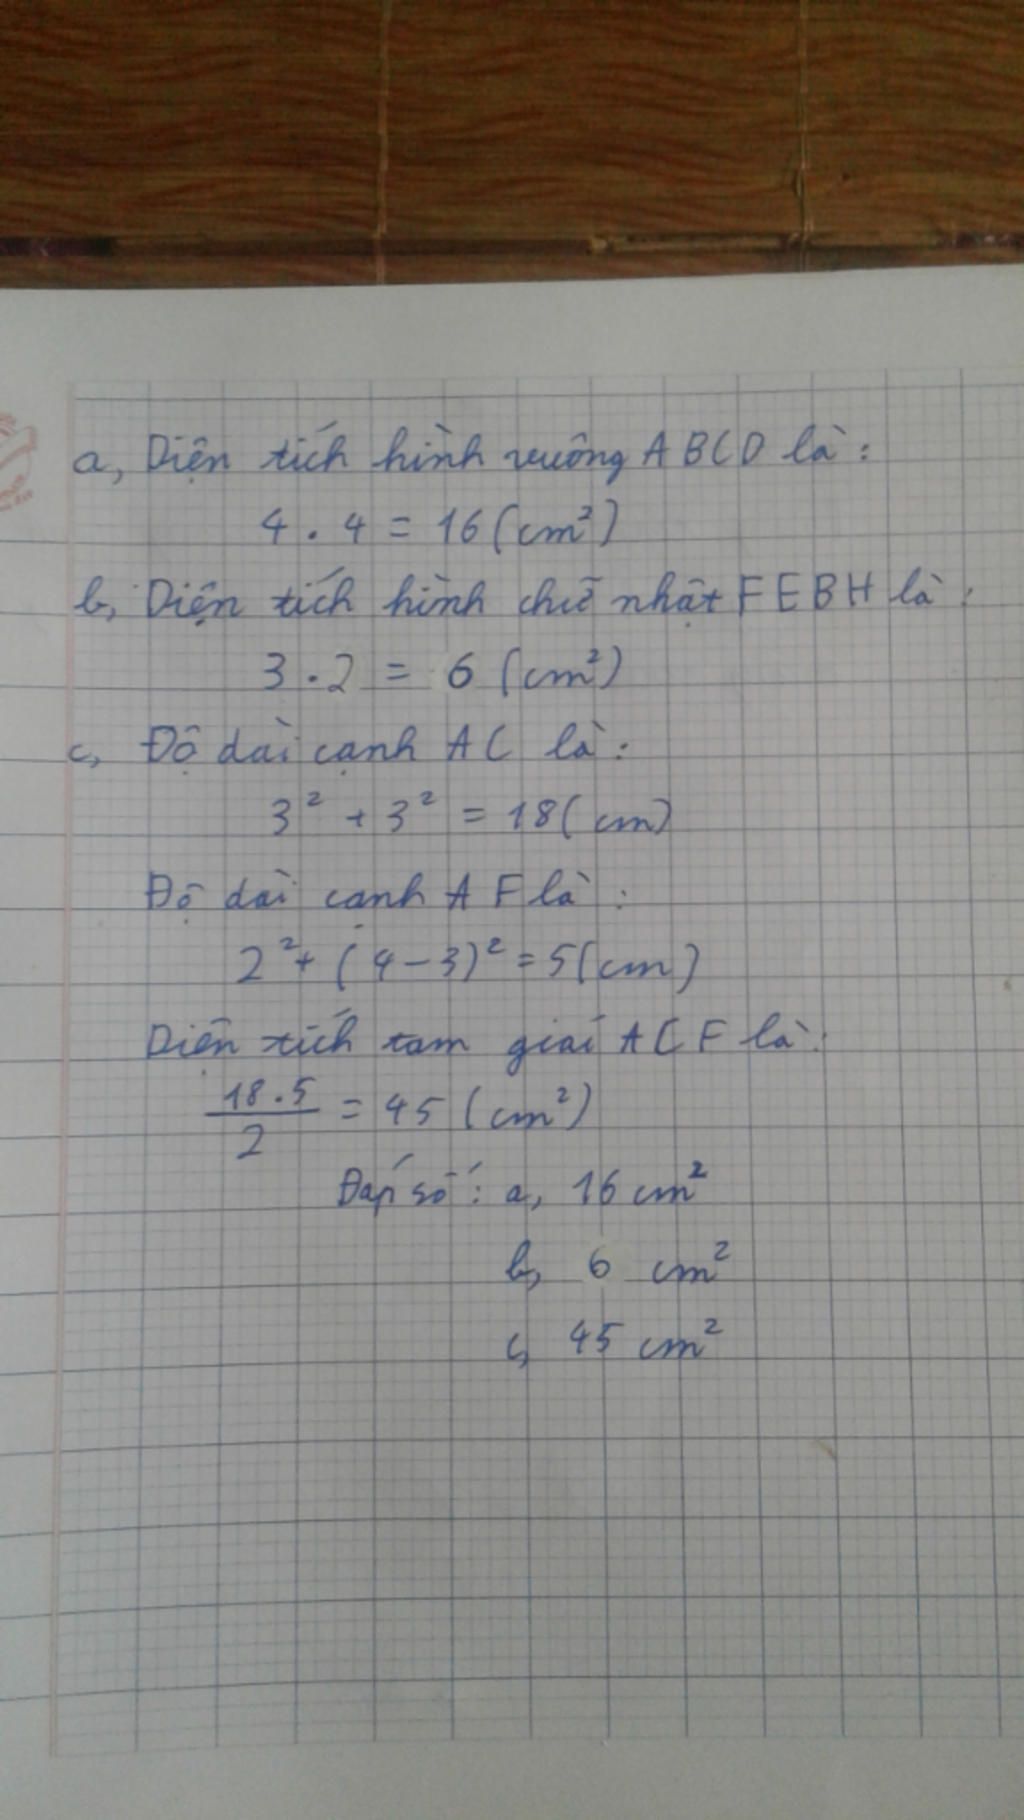 a, Diện tích hình vuông ABCD là:
4 . 4 = 16 (cm²)
b, Diện tích hình chữ nhật FEBH là:
3 . 2 = 6 (cm²)
c, Độ dài cạnh AC là:
3² + 3² = 18 (cm)
Độ dài cạnh AF là:
2² + (4 - 3)² = 5 (cm)
Diện tích tam giái ACF là:
18 . 5 / 2 = 45 (cm²)
Đáp số: a, 16 cm²
b, 6 cm²
c, 45 cm²